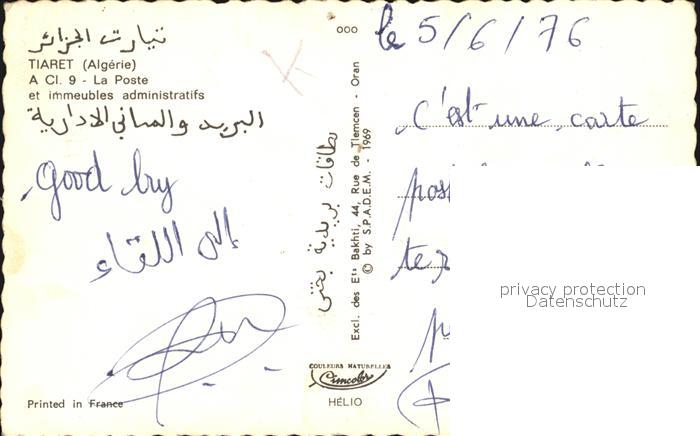 تيارت الجزائر
TIARET (Algérie)
A Cl. 9 - La Poste
et immeubles administratifs
البريد والمباني الادارية
Good by
إلى اللقاء
Printed in France
بطاقات بريدية بختي
Excl. des Ets Bakhti, 44, Rue de Tlemcen - Oran
© by S.P.A.D.E.M. - 1969
COULEURS NATURELLES
Cimcolor
HÉLIO
le 5/6/76
C'est une carte
privacy protection
Datenschutz